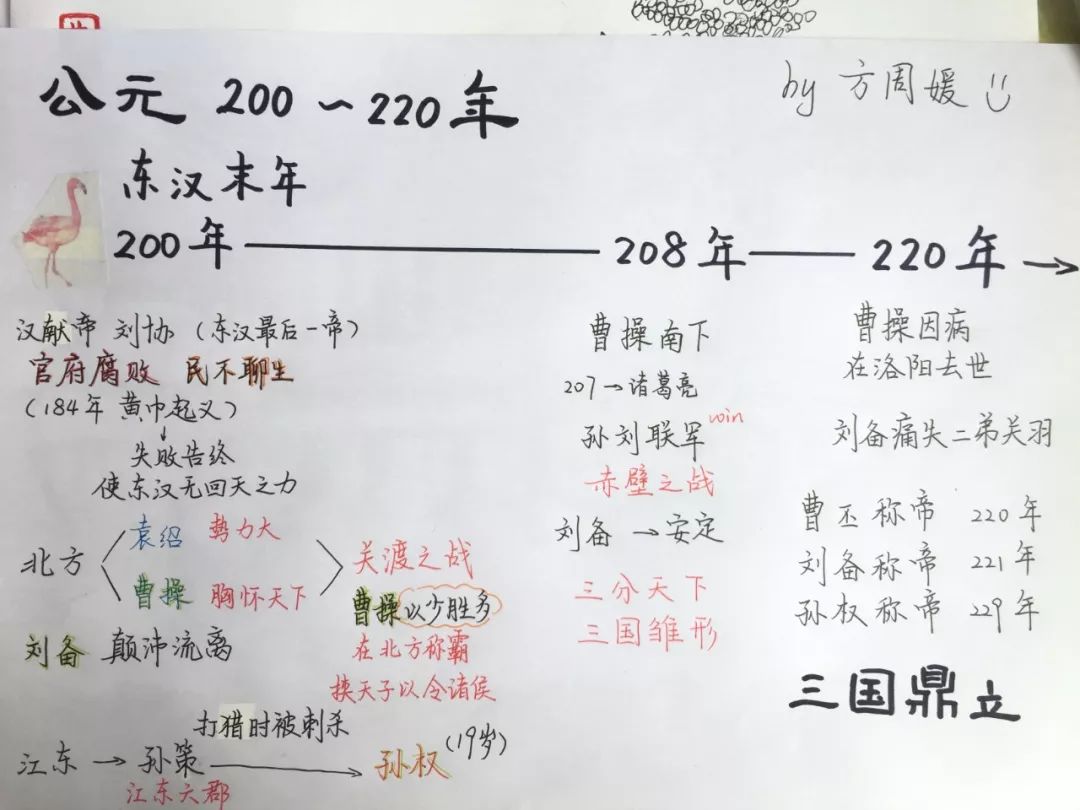 公元 200~220年
by 方周媛
东汉末年
200年 208年 220年
汉献帝 刘协 (东汉最后一帝)
官府腐败 民不聊生
(184年 黄巾起义)
失败告终
使东汉无回天之力
北方
袁绍 势力大
曹操 胸怀天下
关渡之战
曹操以少胜多
在北方称霸
挟天子以令诸侯
刘备 颠沛流离
打猎时被刺杀
江东 → 孙策 → 孙权 (19岁)
江东六郡
曹操南下
207→诸葛亮
孙刘联军 win
赤壁之战
刘备 → 安定
三分天下
三国雏形
曹操因病
在洛阳去世
刘备痛失二弟关羽
曹丕称帝 220年
刘备称帝 221年
孙权称帝 229年
三国鼎立